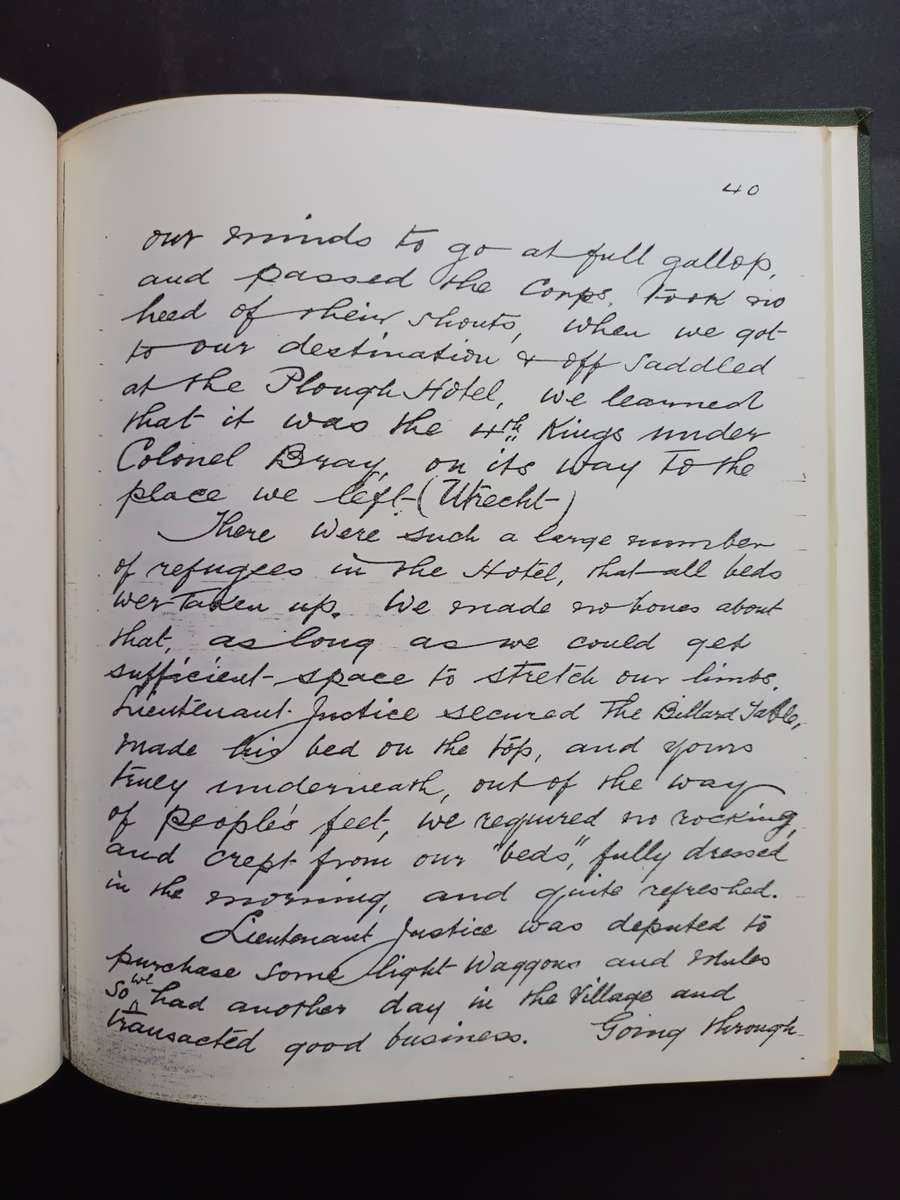 40
our minds to go at full gallop,
and passed the Corps, took no
heed of their shouts, when we got
to our destination & off saddled
at the Plough Hotel, we learned
that it was the 4th Kings under
Colonel Bray, on its way to the
place we left (Utrecht)
There were such a large number
of refugees in the Hotel, that all beds
wer taken up. We made no bones about
that, as long as we could get
sufficient space to stretch our limbs.
Lieutenant Justice secured the Billard Table,
made his bed on the top, and yours
truly underneath, out of the way
of people's feet, we required no rocking,
and crept from our "beds", fully dressed
in the morning, and quite refreshed.
Lieutenant Justice was deputed to
purchase some light Waggons and Mules
so we had another day in the Village and
transacted good business. Going through